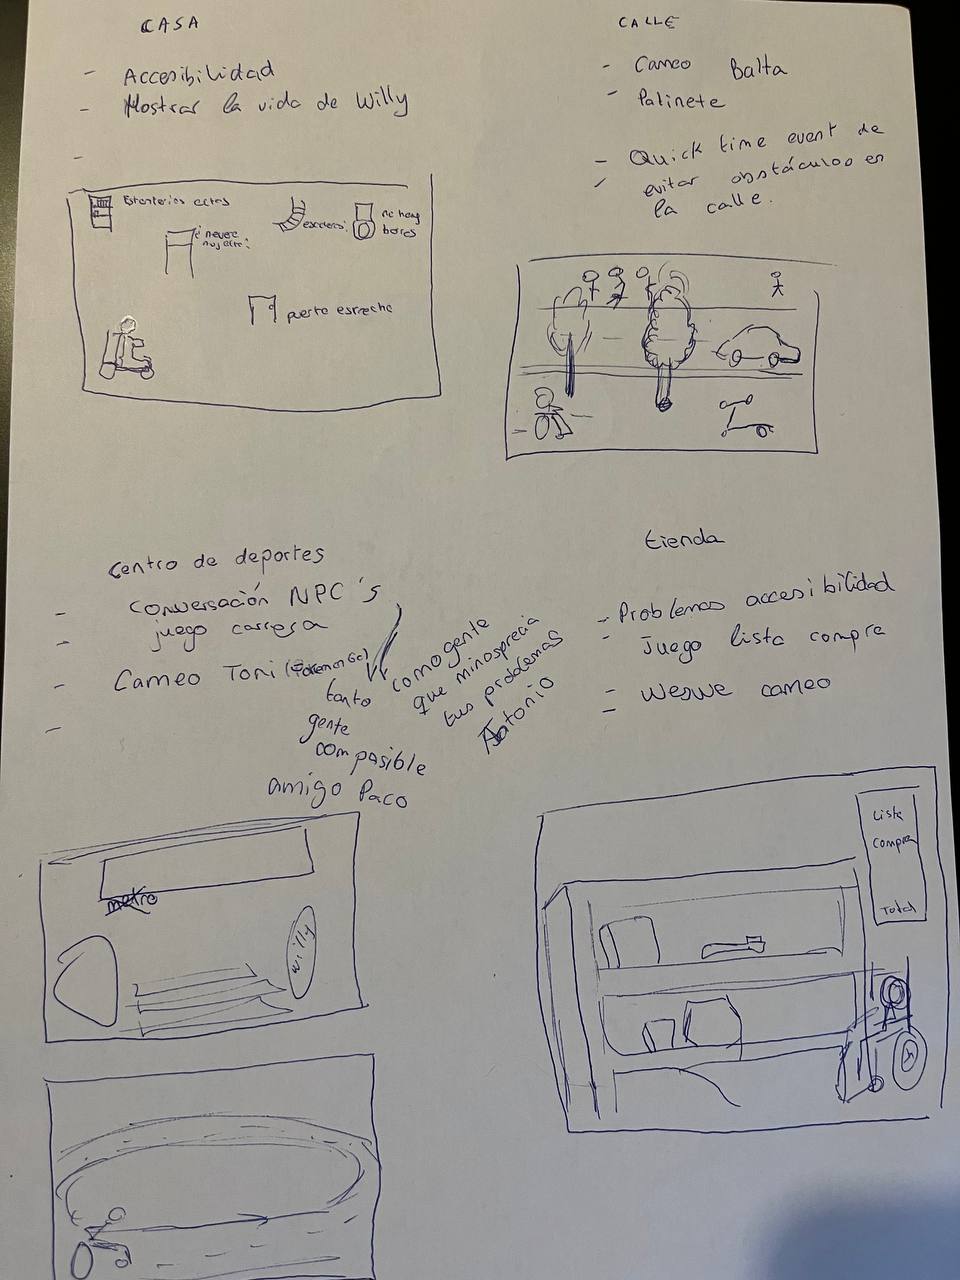 CASA
- Accesibilidad
- Mostrar la vida de Willy
-
Estanterias altas
nevera
muy alta
escaleras
no hay
bares
puerta estrecha
CALLE
- Cameo Balta
- Patinete
- Quick time event de
- evitar obstáculos en
la calle.
Centro de deportes
- Conversación NPC's
- juego carrera
- Cameo Toni
-
tanto
gente
compasible
amigo Paco
como gente
que minosprecia
tus problemas
Antonio
metro
Willy
tienda
- Problemas accesibilidad
- Juego lista compra
- Weswe cameo
-
Lista
Compra
Total